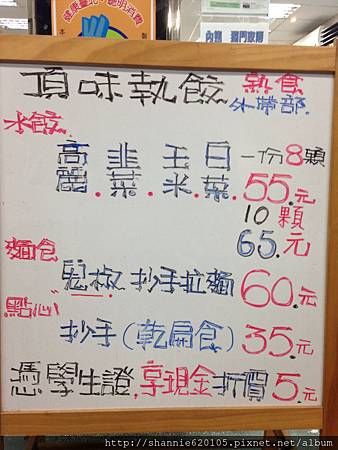 健康臺北,聰明消費
頂味執餃 熟食
外帶部
水餃
高 韭 玉 白 一份8顆
麗.菜.米.菜.55.元
10顆
65.元
麵食
鬼椒抄手拉麵60.元
點心
抄手(乾扁食)35.元
憑學生證,享現金折價5.元
http://shannie620105.pixnet.net/album